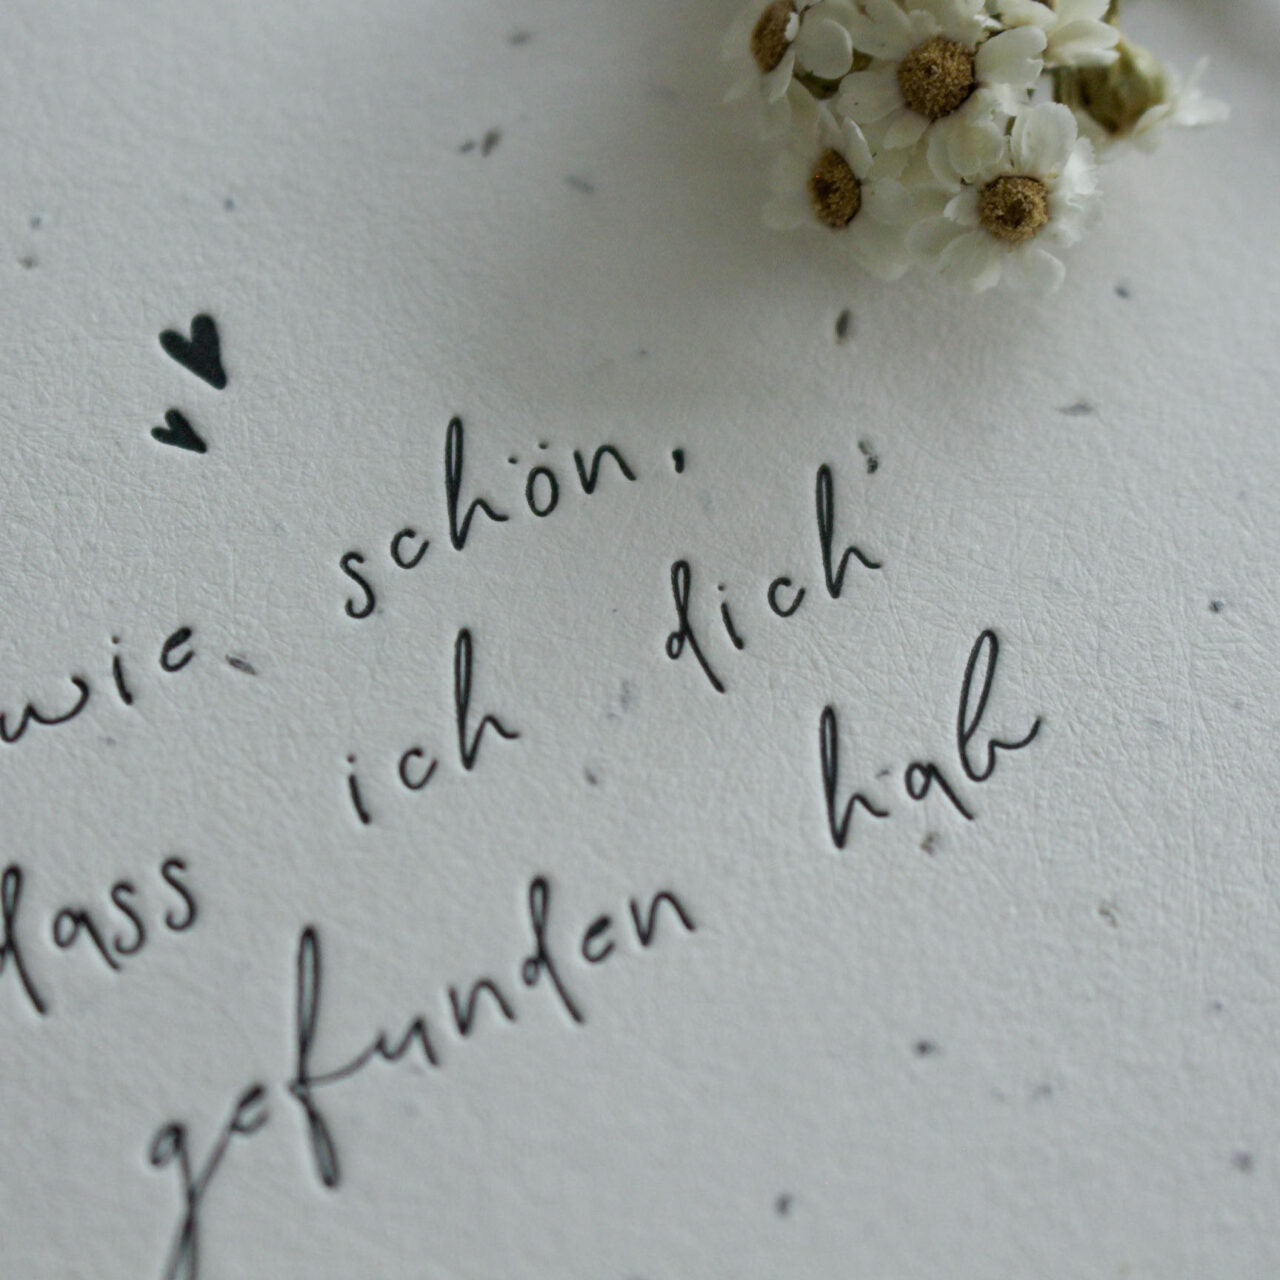 wie schön,
dass ich dich
gefunden hab